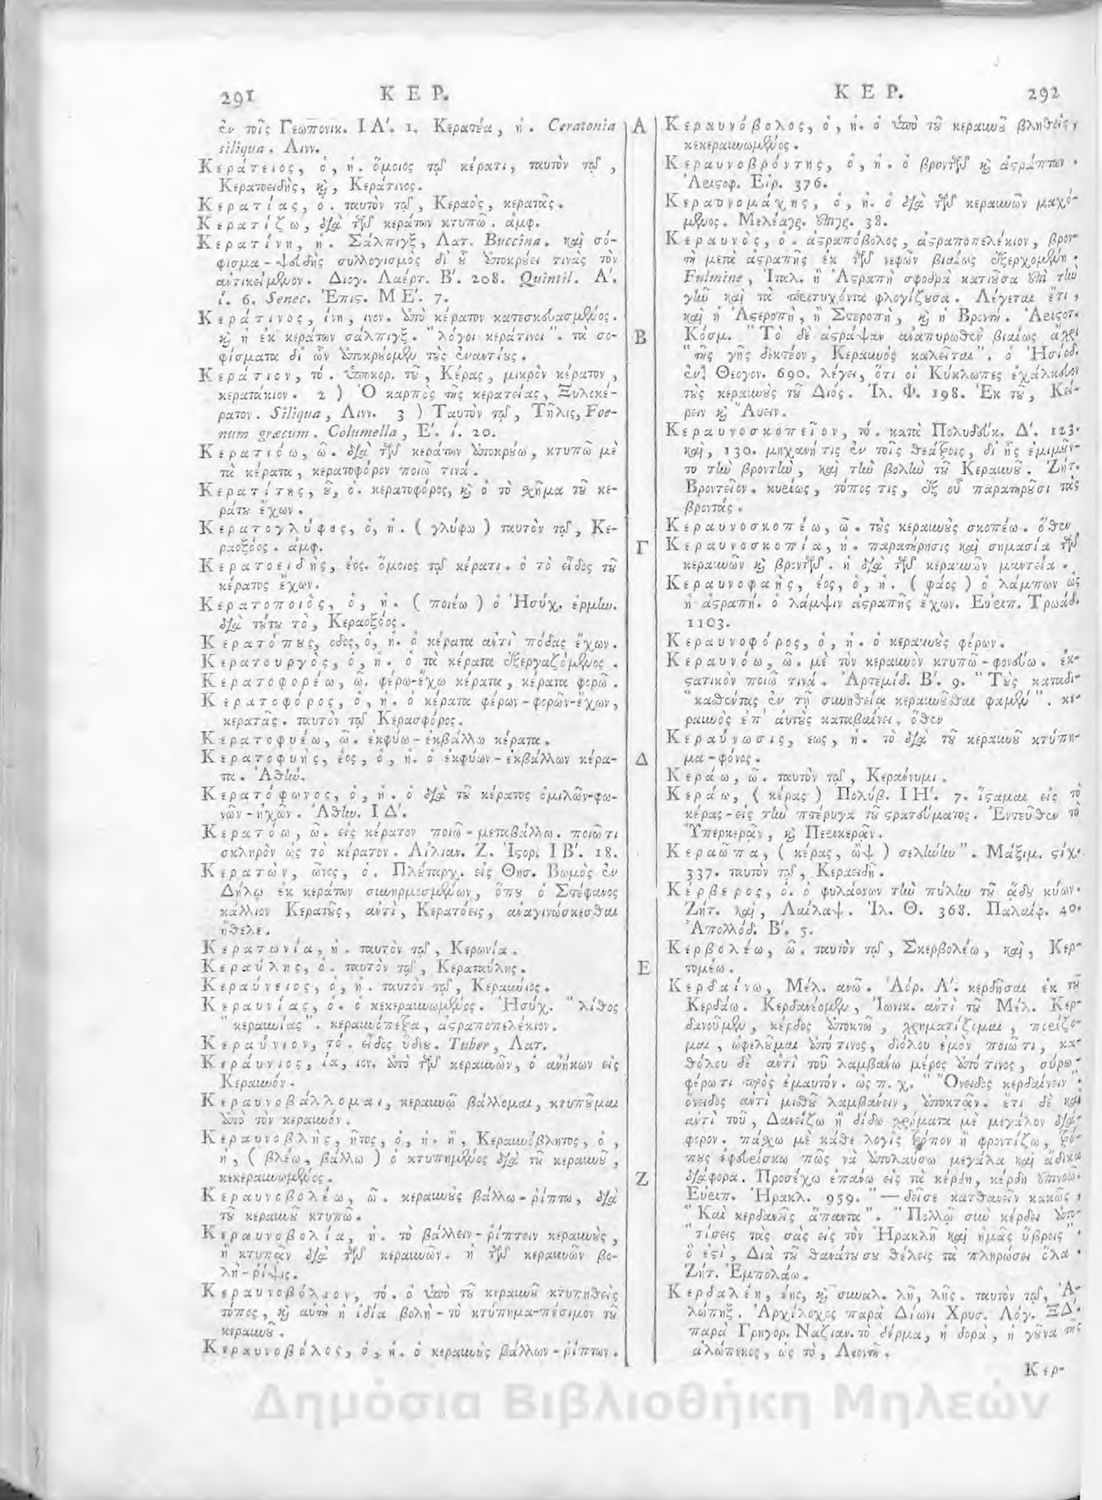 291 ΚΕΡ.
ἐν τοῖς Γεωπονικ. ΙΑ΄. 1. Κερατέα, ἡ. Ceratonia
siliqua. Λινν.
Κεράτειος, ὁ, ἡ. ὅμοιος τῷ κέρατι, ταυτὸν τῷ,
Κερατοειδὴς, καὶ, Κεράτινος.
Κερατίας, ὁ. ταυτὸν τῷ, Κεραὸς, κερατᾶς.
Κερατίζω, διὰ τῶν κεράτων κτυπῶ. ἀμφ.
Κερατίνη, ἡ. Σάλπιγξ, Λατ. Buccina. καὶ σό-
φισμα-ψευδὴς συλλογισμὸς δι' οὗ ἀποκρούει τινὰς τὸν
ἀντικείμενον. Διογ. Λαέρτ. Β΄. 208. Quintil. Α΄.
ί. 6. Senec. Ἐπις. ΜΕ΄. 7.
Κεράτινος, ίνη, ινον. ἀπὸ κέρατον κατεσκευασμένος.
καὶ ἡ ἐκ κεράτων σάλπιγξ. "λόγοι κεράτινοι". τὰ σο-
φίσματα δι' ὧν ἀποκρούομεν τοὺς ἐναντίους.
Κεράτιον, τό. ὑποκορ. τοῦ, Κέρας, μικρὸν κέρατον,
κερατάκιον. 2 ) Ὁ καρπὸς τῆς κερατέας, Ξυλοκέ-
ρατον. Siliqua, Λινν. 3 ) Ταυτὸν τῷ, Τῆλις, Foe-
num græcum. Columella, Ε΄. ί. 20.
Κερατιόω, ῶ. διὰ τῶν κεράτων ἀποκρούω, κτυπῶ μὲ
τὰ κέρατα, κερατοφόρον ποιῶ τινά.
Κερατίτης, ου, ὁ. κερατοφόρος, καὶ ὁ τὸ σχῆμα τοῦ κε-
ράτου ἔχων.
Κερατογλύφος, ὁ, ἡ. ( γλύφω ) ταυτὸν τῷ, Κε-
ραοξόος. ἀμφ.
Κερατοειδὴς, έος. ὅμοιος τῷ κέρατι. ὁ τὸ εἶδος τοῦ
κέρατος ἔχων.
Κερατοποιὸς, ὁ, ἡ. ( ποιέω ) ὁ Ἡσύχ. ἑρμην.
διὰ τούτου τὸ, Κεραοξόος.
Κερατόπους, οδος, ὁ, ἡ. ὁ κέρατα ἀντὶ πόδας ἔχων.
Κερατουργὸς, ὁ, ἡ. ὁ τὰ κέρατα ἐξεργαζόμενος.
Κερατοφορέω, ῶ. φέρω-ἔχω κέρατα, κέρατα φορῶ.
Κερατοφόρος, ὁ, ἡ. ὁ κέρατα φέρων-φορῶν-ἔχων,
κερατᾶς. ταυτὸν τῷ Κερασφόρος.
Κερατοφυέω, ῶ. ἐκφύω-ἐκβάλλω κέρατα.
Κερατοφυὴς, έος, ὁ, ἡ. ὁ ἐκφύων-ἐκβάλλων κέρα-
τα. Ἀθήν.
Κερατόφωνος, ὁ, ἡ. ὁ διὰ τοῦ κέρατος ὁμιλῶν-φω-
νῶν-ἠχῶν. Ἀθην. ΙΔ΄.
Κερατόω, ῶ. εἰς κέρατον ποιῶ-μεταβάλλω. ποιῶ τι
σκληρὸν ὡς τὸ κέρατον. Αἰλιαν. Ζ. Ἱςορ. ΙΒ΄. 18.
Κερατὼν, ῶνος, ὁ. Πλούταρχ. εἰς Θησ. Βωμὸς ἐν
Δήλῳ ἐκ κεράτων συνηρμοσμένων, ὅπου ὁ Στέφανος
κάλλιον Κερατοῦς, ἀντὶ, Κερατόεις, ἀναγινώσκεσθαι
ἤθελε.
Κερατωνία, ἡ. ταυτὸν τῷ, Κερωνία.
Κεραύλης, ὁ. ταυτὸν τῷ, Κεραταύλης.
Κεραύνειος, ὁ, ἡ. ταυτὸν τῷ, Κεραύνιος.
Κεραυνίας, ὁ. ὁ κεκεραυνωμένος. Ἡσύχ. "λίθος
"κεραυνίας". κεραυνόπετρα, ἀςραποπελέκιον.
Κεραύνιον, τό. εἶδος ὕδνου. Tuber, Λατ.
Κεραύνιος, ία, ιον. ἀπὸ τῶν κεραυνῶν, ὁ ἀνήκων εἰς
Κεραυνόν.
Κεραυνοβάλλομαι, κεραυνῷ βάλλομαι, κτυποῦμαι
ἀπὸ τὸν κεραυνόν.
Κεραυνοβλὴς, ῆτος, ὁ, ἡ. ἢ, Κεραυνόβλητος, ὁ,
ἡ, ( βλέω, βάλλω ) ὁ κτυπημένος διὰ τοῦ κεραυνοῦ,
κεκεραυνωμένος.
Κεραυνοβολέω, ῶ. κεραυνοὺς βάλλω-ρίπτω, διὰ
τοῦ κεραυνοῦ κτυπῶ.
Κεραυνοβολία, ἡ. τὸ βάλλειν-ρίπτειν κεραυνοὺς,
ἢ κτυπᾶν διὰ τῶν κεραυνῶν. ἡ τῶν κεραυνῶν βο-
λὴ-ρίψις.
Κεραυνοβόλιον, τό. ὁ ὑπὸ τοῦ κεραυνοῦ κτυπηθεὶς
τόπος, καὶ αὐτὴ ἡ ἰδία βολὴ-τὸ κτύπημα-πέσιμον τοῦ
κεραυνοῦ.
Κεραυνοβόλος, ὁ, ἡ. ὁ κεραυνοὺς βάλλων-ρίπτων.
Α
Β
Γ
Δ
Ε
Ζ
ΚΕΡ. 292
Κεραυνόβολος, ὁ, ἡ. ὁ ὑπὸ τοῦ κεραυνοῦ βληθεὶς,
κεκεραυνωμένος.
Κεραυνοβρόντης, ὁ, ἡ. ὁ βροντῶν καὶ ἀςράπτων.
Ἀριςοφ. Εἰρ. 376.
Κεραυνομάχης, ὁ, ἡ. ὁ διὰ τῶν κεραυνῶν μαχό-
μενος. Μελέαγρ. ἐπιγρ. 38.
Κεραυνὸς, ὁ. ἀςραπόβολος, ἀςραποπελέκιον, βρον-
τὴ μετὰ ἀςραπῆς ἐκ τῶν νεφῶν βιαίως ἐξερχομένη.
Fulmine, Ἰταλ. ἢ Ἀςραπὴ σφοδρὰ κατιοῦσα ἐπὶ τὴν
γῆν καὶ τὰ παρατυχόντα φλογίζουσα. Λέγεται ἔτι,
καὶ ἡ Ἀςεροπὴ, ἢ Στεροπὴ, καὶ ἡ Βροντή. Ἀριςοτ.
Κόσμ. "Τὸ δὲ ἀςράψαν ἀναπυρωθὲν βιαίως ἄχρι
"τῆς γῆς διεκθέον, Κεραυνὸς καλεῖται". ὁ Ἡσίοδ.
ἐν Θεογον. 690. λέγει, ὅτι οἱ Κύκλωπες ἐχάλκευον
τοὺς κεραυνοὺς τοῦ Διός. Ἰλ. Φ. 198. Ἐκ τοῦ, Κεί-
ρειν καὶ Αὔειν.
Κεραυνοσκοπεῖον, τό. κατὰ Πολυδεύκ. Δ΄. 123.
καὶ, 130. μηχανή τις ἐν τοῖς θεάτροις, δι' ἧς ἐμιμοῦν-
το τὴν βροντὴν, καὶ τὴν βολὴν τοῦ Κεραυνοῦ. Ζήτ.
Βροντεῖον. κυρίως, τόπος τις, ἐξ οὗ παρατηροῦσι τὰς
βροντάς.
Κεραυνοσκοπέω, ῶ. τοὺς κεραυνοὺς σκοπέω. ὅθεν
Κεραυνοσκοπία, ἡ. παρατήρησις καὶ σημασία τῶν
κεραυνῶν καὶ βροντῶν. ἡ διὰ τῶν κεραυνῶν μαντεία.
Κεραυνοφαὴς, έος, ὁ, ἡ. ( φάος ) ὁ λάμπων ὡς
ἡ ἀςραπή. ὁ λάμψιν ἀςραπῆς ἔχων. Εὐριπ. Τρωάδ.
1103.
Κεραυνοφόρος, ὁ, ἡ. ὁ κεραυνοὺς φέρων.
Κεραυνόω, ῶ. μὲ τὸν κεραυνὸν κτυπῶ-φονεύω. ἐκ-
ςατικὸν ποιῶ τινά. Ἀρτεμίδ. Β΄. 9. "Τοὺς καταδι-
"κασθέντας ἐν τῇ συνηθείᾳ κεραυνοῦσθαι φαμέν". κε-
ραυνὸς ἐπ' αὐτοὺς καταβαίνει. ὅθεν
Κεραύνωσις, εως, ἡ. τὸ διὰ τοῦ κεραυνοῦ κτύπη-
μα-φόνος.
Κεράω, ῶ. ταυτὸν τῷ, Κεράννυμι.
Κεράω, ( κέρας ) Πολύβ. ΙΗ΄. 7. ἵςαμαι εἰς τὸ
κέρας-εἰς τὴν πτέρυγα τοῦ ςρατεύματος. Ἐντεῦθεν τὸ
Ὑπερκερᾷν, καὶ Περικερᾷν.
Κεραῶπα, ( κέρας, ὤψ ) σελήνην". Μάξιμ. ςίχ.
337. ταυτὸν τῷ, Κεραειδῆ.
Κέρβερος, ὁ. ὁ φυλάσσων τὴν πύλην τοῦ ᾅδου κύων.
Ζήτ. καὶ, Λαῖλαψ. Ἰλ. Θ. 368. Παλαίφ. 40.
Ἀπολλόδ. Β΄. 5.
Κερβολέω, ῶ. ταυτὸν τῷ, Σκερβολέω, καὶ, Κερ-
τομέω.
Κερδαίνω, Μέλ. ανῶ. Ἀόρ. Α΄. κερδῆσαι ἐκ τοῦ
Κερδάω. Κερδανέομεν, Ἰωνικ. ἀντὶ τοῦ Μέλ. Κερ-
δανοῦμεν, κέρδος ἀποκτῶ, χρηματίζομαι, πλεονάζο-
μαι, ὠφελοῦμαι ἀπό τινος, διόλου ἐμὸν ποιῶ τι, κα-
θόλου δὲ ἀντὶ τοῦ λαμβάνω μέρος ἀπό τινος, σύρω-
φέρω τι πρὸς ἐμαυτόν. ὡς π. χ. "Ὄνειδος κερδαίνειν".
ὄνειδος ἀντὶ μισθοῦ λαμβάνειν, ἀποκτᾶν. ἔτι δὲ καὶ
ἀντὶ τοῦ, Δανείζω ἢ δίδω χρήματα μὲ μεγάλον διά-
φορον. πάσχω μὲ κάθε λογῆς τρόπον ἢ φροντίζω, τρό-
πους ἐφευρίσκω πῶς νὰ ἀπολαύσω μεγάλα καὶ ἄδικα
διάφορα. Προσέχω ἐπάνω εἰς τὰ κέρδη, κέρδη ἐπινοῶ.
Εὐριπ. Ἡρακλ. 959. "—δεῖσε κατθανεῖν κακῶς,
"Καὶ κερδανεῖς ἅπαντα". "Πολλῷ σὺν κέρδει ἀπο-
"τίσεις τὰς σὰς εἰς τὸν Ἡρακλῆ καὶ ἡμᾶς ὕβρεις".
ὅ ἐςι, Διὰ τοῦ θανάτου σου θέλεις τὰ πληρώσει ὅλα.
Ζήτ. Ἐμπολάω.
Κερδαλέη, έης, καὶ συναλ. λῆ, λῆς. ταυτὸν τῷ, Ἀ-
λώπηξ. Ἀρχίλοχος παρὰ Δίωνι Χρυσ. Λόγ. ΞΔ΄.
παρὰ Γρηγόρ. Ναζιαν. τὸ δέρμα, ἡ δορὰ, ἡ γοῦνα τῆς
ἀλώπεκος, ὡς τὸ, Λεοντῆ.
Κερ-
Δημόσια Βιβλιοθήκη Μηλεών